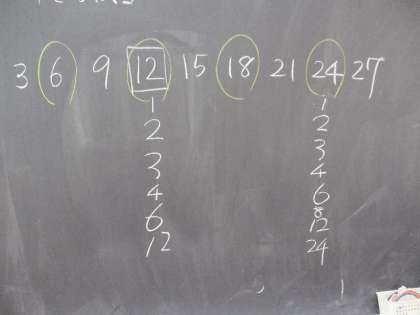 3 6 9 12 15 18 21 24 27
1 1
2 2
3 3
4 4
6 6
8
12 12
24